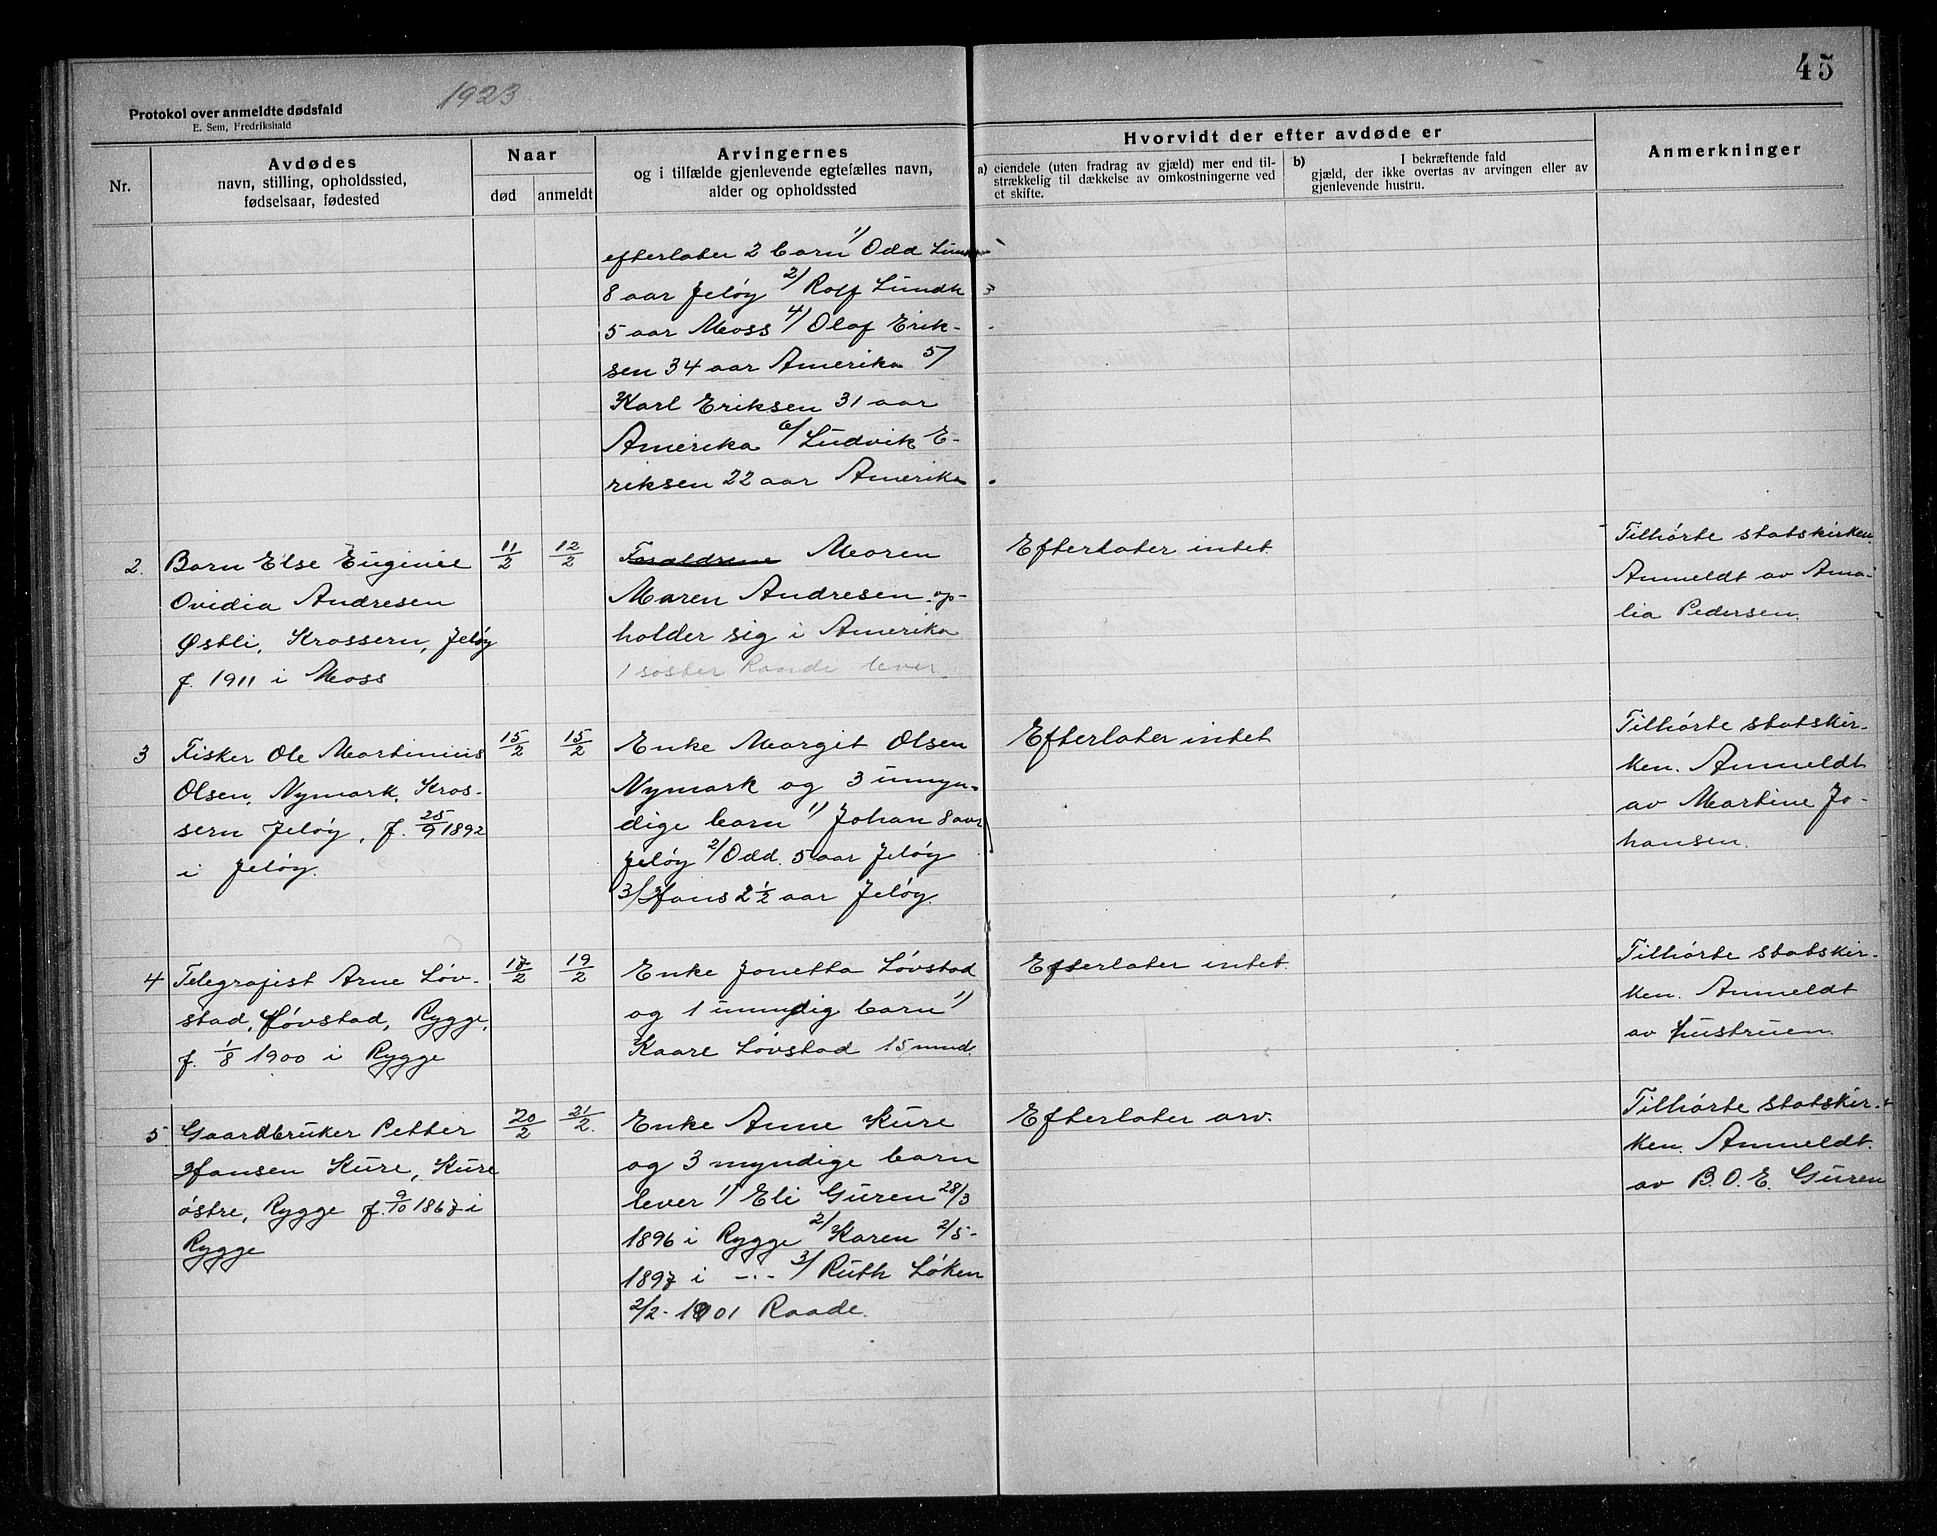 45
1923
Protokol over anmeldte dødsfald
E. Sem, Fredrikshald
Nr.
Avdødes
navn, stilling, opholdssted,
fødselsaar, fødested
Naar
død
anmeldt
Arvingernes
og i tilfælde gjenlevende egtefælles navn,
alder og opholdssted
Hvorvidt der efter avdøde er
a) eiendele (uten fradrag av gjæld) mer end til-
strækkelig til dækkelse av omkostningerne ved
et skifte.
b) I bekræftende fald
gjæld, der ikke overtas av arvingen eller av
gjenlevende hustru.
Anmerkninger
efterlater 2 barn 1/ Odd
8 aar Jeløy 2/ Rolf Lundh
5 aar Moss 4/ Olaf Erik-
sen 34 aar Amerika 5/
Karl Eriksen 31 aar
Amerika 6/ Ludvik E-
riksen 22 aar Amerika.
2. Barn Else Euginie
Ovidia Andresen
Østli, Krossern, Jeløy
f. 1911 i Moss
11/2
12/2
Forældrene Moren
Maren Andresen op-
holder sig i Amerika
1 søster Randi lever
Efterlater intet.
Tilhørte statskirken.
Anmeldt av Ama-
lia Pedersen.
3 Fisker Ole Martinius
Olsen, Nymark, Kros-
sern Jeløy, f. 25/9 1892
i Jeløy.
15/2
15/2
Enke Margit Olsen
Nymark og 3 umyn-
dige barn 1/ Johan 8 aar
Jeløy 2/ Odd. 5 aar Jeløy
3/ Hans 2 1/2 aar Jeløy.
Efterlater intet
Tilhørte statskir-
ken. Anmeldt
av Martine Jo-
hansen.
4 Telegrafist Arne Løv-
stad, Løvstad, Rygge,
f. 1/8 1900 i Rygge
17/2
19/2
Enke Jonetta Løvstad
og 1 umyndig barn 1/
Kaare Løvstad 15 mnd.
Efterlater intet.
Tilhørte statskir-
ken. Anmeldt
av hustruen.
5. Gaardbruker Petter
Hansen Kure, Kure
østre, Rygge f. 9/10 1867 i
Rygge
20/2
21/2.
Enke Anne Kure
og 3 myndige barn
lever 1/ Eli Guren 28/3
1896 i Rygge 2/ Karen 2/5-
1897 i -"- 3/ Ruth Løken
2/2-1901 Raade.
Efterlater arv.
Tilhørte statskir-
ken. Anmeldt.
av B. O. E. Guren